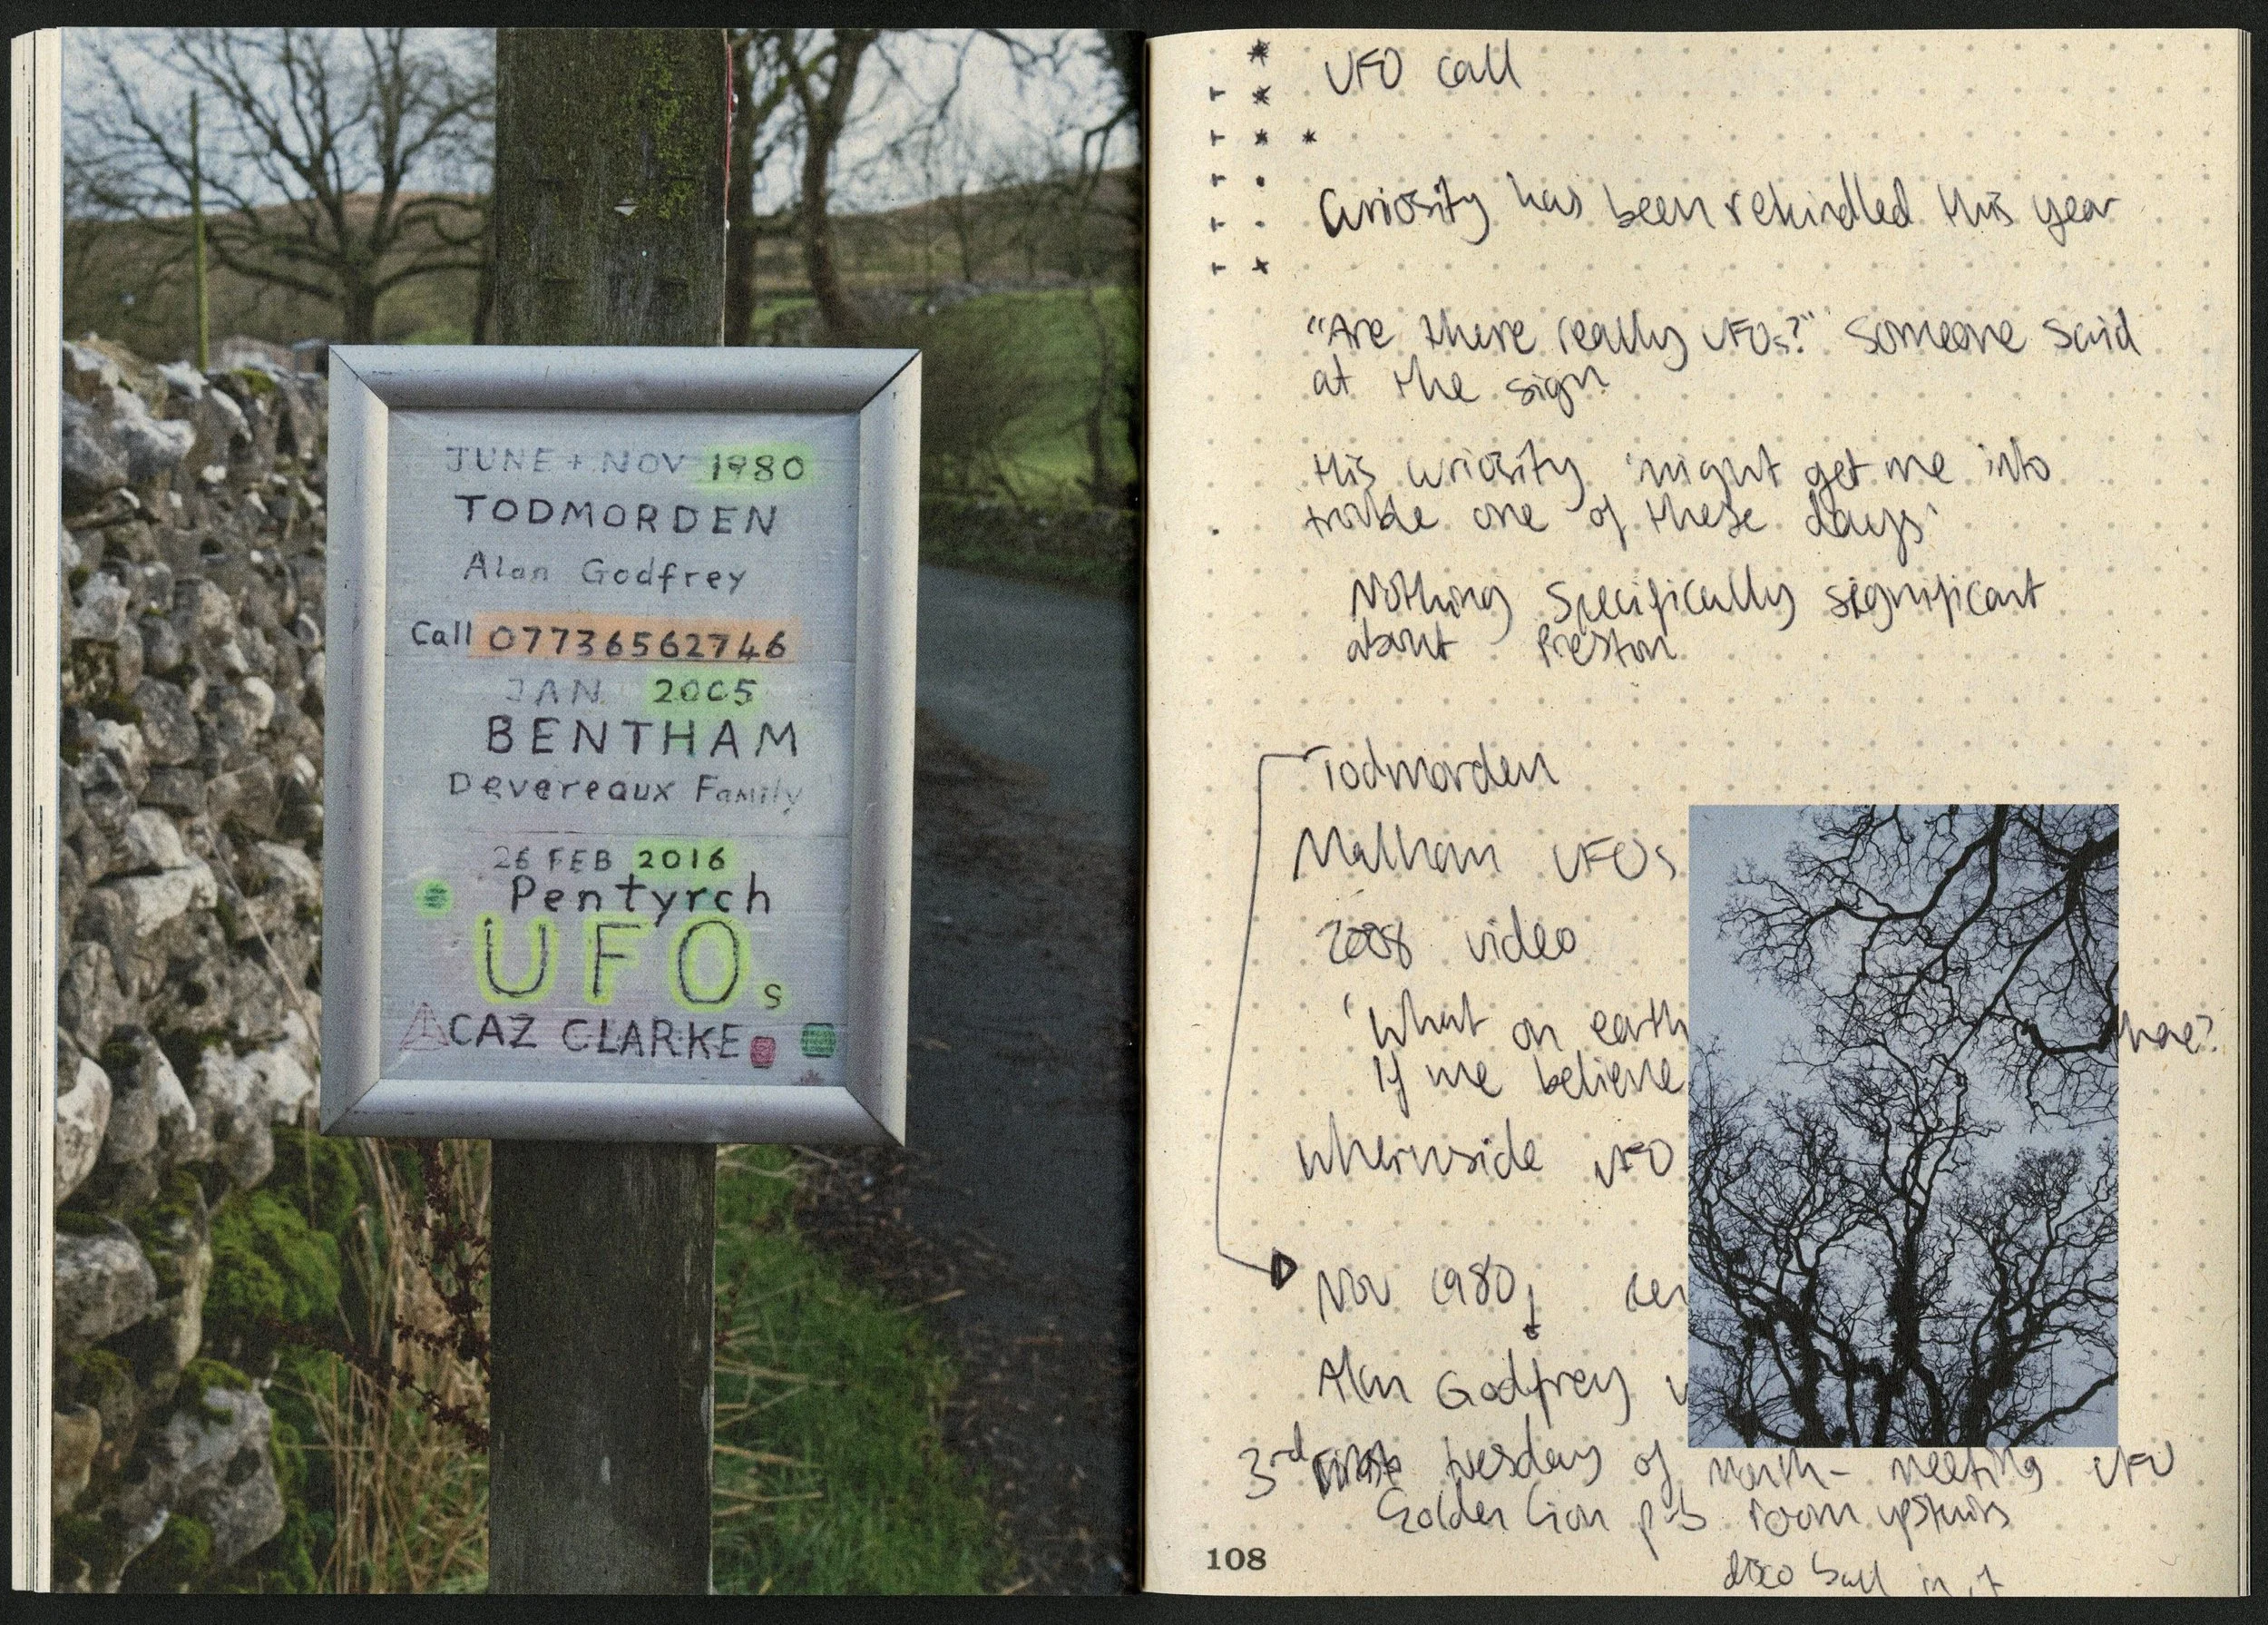 JUNE + NOV 1980
TODMORDEN
Alan Godfrey
Call 07736562746
JAN 2005
BENTHAM
Devereaux Family
26 FEB 2016
Pentyrch
UFOs
CAZ CLARKE
UFO call
Curiosity has been rekindled this year
"Are there really UFOs?" someone said
at the sign
this curiosity 'might get me into
trouble one of these days'
Nothing specifically significant
about Preston
Todmorden
Malham UFOs
2008 video
'What on earth
If me believe
Whernside UFO
Nov 1980
Alan Godfrey
3rd tuesday of month - meeting UFO
Golden Lion pub room upstairs
disco ball in it
108